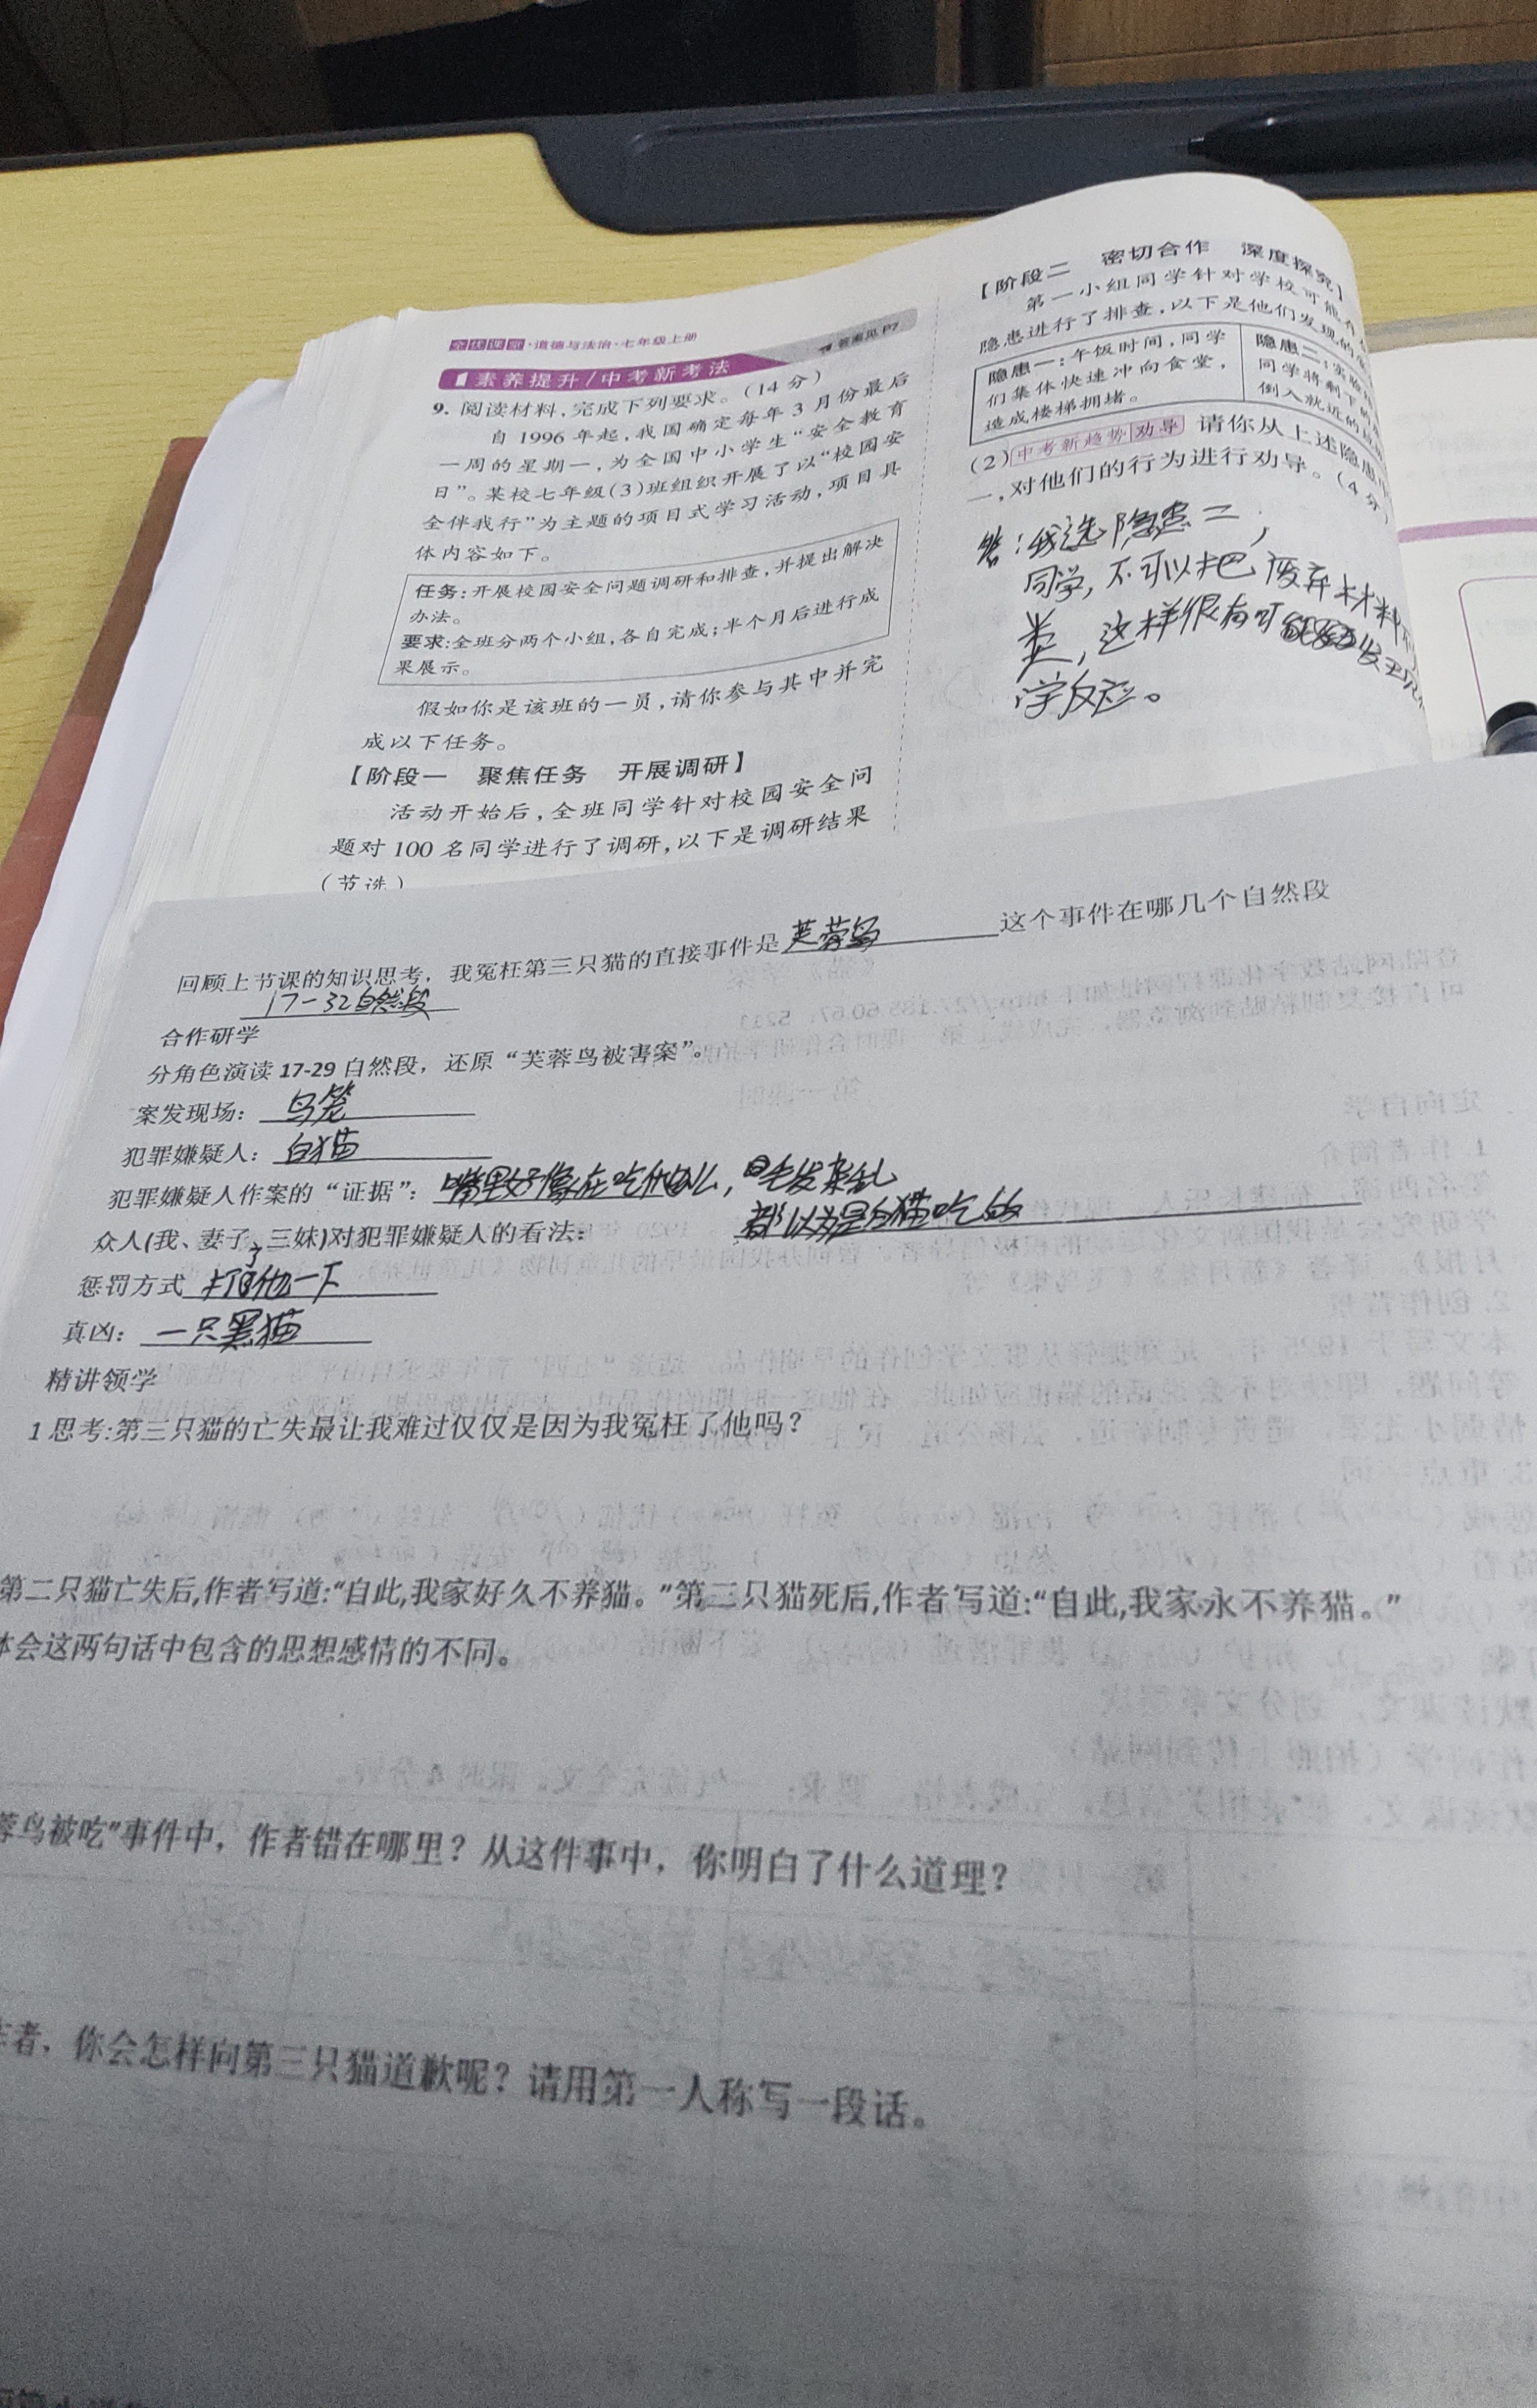 全优课堂·道德与法治·七年级上册
答案见P7
素养提升/中考新考法
9. 阅读材料,完成下列要求。(14分)
自1996年起,我国确定每年3月份最后
一周的星期一,为全国中小学生“安全教育
日”。某校七年级(3)班组织开展了以“校园安
全伴我行”为主题的项目式学习活动,项目具
体内容如下。
任务:开展校园安全问题调研和排查,并提出解决
办法。
要求:全班分两个小组,各自完成;半个月后进行成
果展示。
假如你是该班的一员,请你参与其中并完
成以下任务。
【阶段一 聚焦任务 开展调研】
活动开始后,全班同学针对校园安全问
题对100名同学进行了调研,以下是调研结果
(节选)
【阶段二 密切合作 深度探究】
第一小组同学针对学校可能存
隐患进行了排查,以下是他们发现的
隐患一:午饭时间,同学
们集体快速冲向食堂,
造成楼梯拥堵。
隐患二:实验
同学将剩下的
倒入就近的
(2)中考新趋势 劝导 请你从上述隐患中
一,对他们的行为进行劝导。(4分)
答:我选隐患二,
同学,不可以把废弃材料
类,这样很有可能
学反应。
回顾上节课的知识思考,我冤枉第三只猫的直接事件是芙蓉鸟这个事件在哪几个自然段
17-32自然段
合作研学
分角色演读17-29自然段,还原“芙蓉鸟被害案”。
案发现场:鸟笼
犯罪嫌疑人:白猫
犯罪嫌疑人作案的“证据”:嘴里好像在吃什么,毛发杂乱
众人(我、妻子、三妹)对犯罪嫌疑人的看法:都以为是白猫吃的
惩罚方式 打了他一下
真凶:一只黑猫
精讲领学
1思考:第三只猫的亡失最让我难过仅仅是因为我冤枉了他吗?
第二只猫亡失后,作者写道:“自此,我家好久不养猫。”第三只猫死后,作者写道:“自此,我家永不养猫。”
体会这两句话中包含的思想感情的不同。
蓉鸟被吃”事件中,作者错在哪里?从这件事中,你明白了什么道理?
作者,你会怎样向第三只猫道歉呢?请用第一人称写一段话。